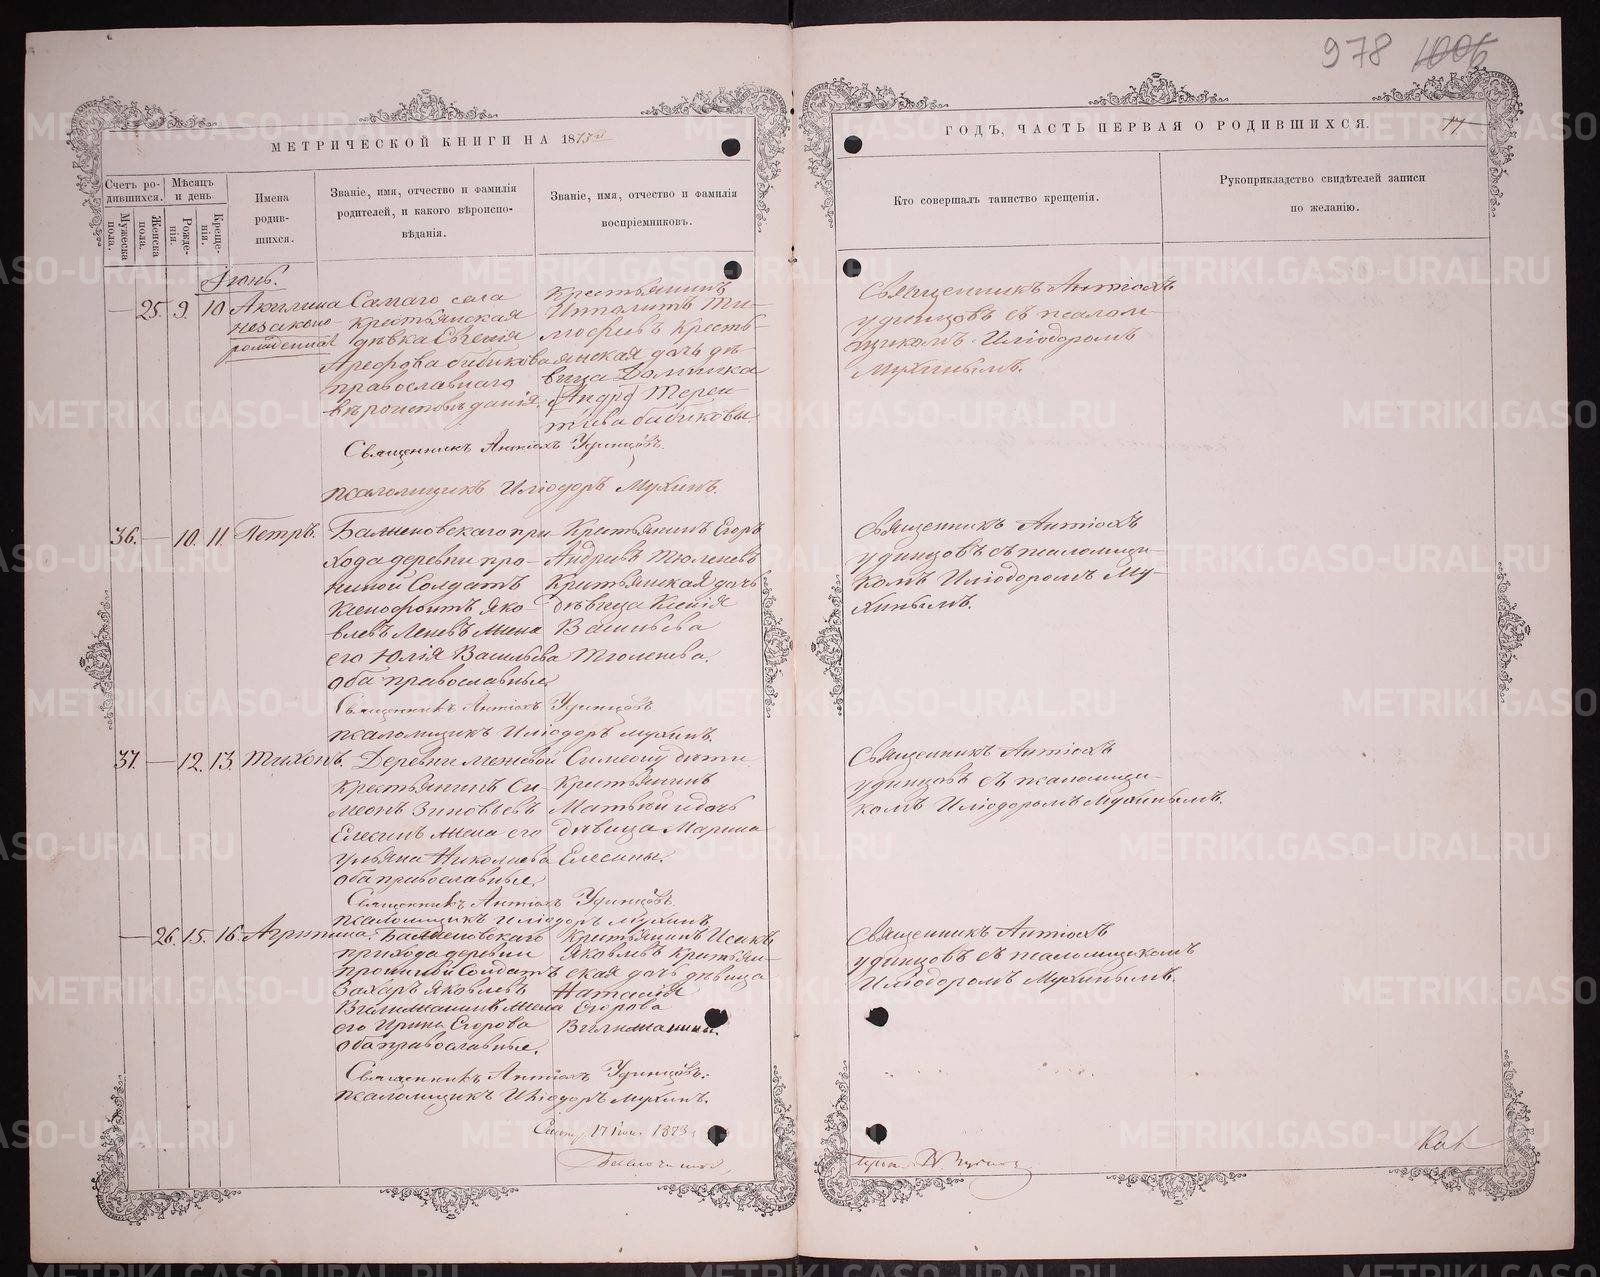 978 1006
МЕТРИЧЕСКОЙ КНИГИ НА 1873й
ГОДЪ, ЧАСТЬ ПЕРВАЯ О РОДИВШИХСЯ.
Счетъ родившихся.
Мужеска пола.
Женска пола.
Мѣсяцъ и день.
Рожденія.
Крещенія.
Имена родившихся.
Званіе, имя, отчество и фамилія
родителей, и какого вѣроиспо-
вѣданія.
Званіе, имя, отчество и фамилія
воспріемниковъ.
Кто совершалъ таинство крещенія.
Рукоприкладство свидѣтелей записи
по желанію.
Іюнь.
— 25. 9. 10 Акилина
незаконо
рожденная
Самаго села
крестьянская
дѣвка Евгенія
Арефова Бибикова
православнаго
вѣроисповѣданія.
Крестьянинъ
Ипполитъ Ти-
мофѣевъ кресть-
янская дочь дѣ-
вица Домника
Терен
тіева Бибиковы.
Священникъ Антіохъ Удинцовъ.
псаломщикъ Иліодоръ Мухинъ.
Священникъ Антіохъ
Удинцовъ съ псалом-
щикомъ Иліодоромъ
Мухинымъ.
36. — 10. 11. Петръ.
прихода деревни Про-
ниной Солдатъ
Ксенофонтъ Яко-
влевъ жена
его Юлія Васильева
оба православные
Крестьянинъ Егоръ
Андреевъ Тюленевъ
Крестьянская дочь
дѣвица Ксенія
Васильева
Тюленева.
Священникъ Антіохъ Удинцовъ
псаломщикъ Иліодоръ Мухинъ.
Священникъ Антіохъ
Удинцовъ съ псаломщи-
комъ Иліодоромъ Му-
хинымъ.
37. — 12. 13. Тихонъ.
Деревни
крестьянинъ Си-
меонъ Зиновьевъ
Елесинъ жена его
Ульяна Николаева
оба православные.
Симеону дѣти
крестьянинъ
Матвѣй и дочь
дѣвица Марина
Елесины.
Священникъ Антіохъ Удинцовъ.
псаломщикъ Иліодоръ Мухинъ.
Священникъ Антіохъ
Удинцовъ съ псаломщи-
комъ Иліодоромъ Мухинымъ.
— 26. 15. 16. Агрипина.
прихода деревни
Прониной Солдатъ
Захаръ Яковлевъ
жена
его Ирина Егорова
оба православные.
Крестьянинъ Исакъ
Яковлевъ крестьян-
ская дочь дѣвица
Настасія
Егорова
Священникъ Антіохъ Удинцовъ.
псаломщикъ Иліодоръ Мухинъ.
Священникъ Антіохъ
Удинцовъ съ псаломщикомъ
Иліодоромъ Мухинымъ.
17 1873
METRIKI.GASO-URAL.RU